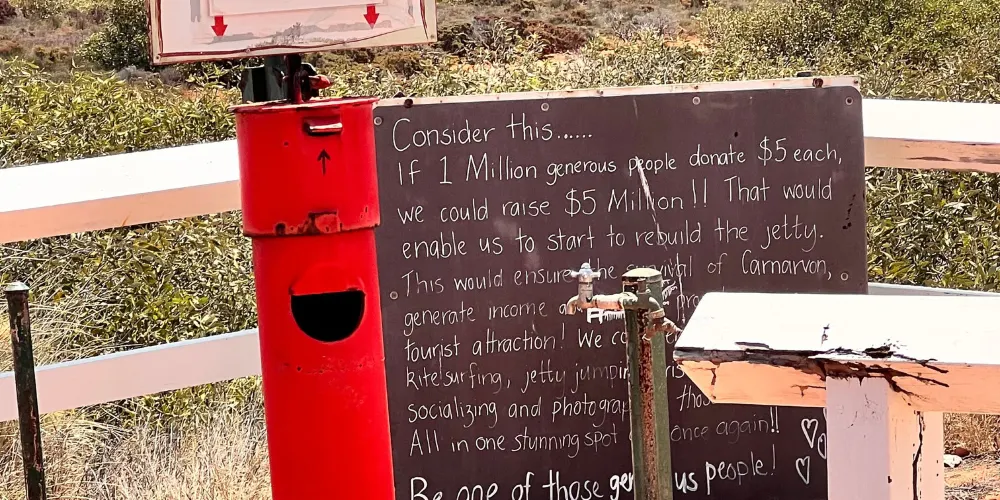 Consider this......
If 1 Million generous people donate $5 each,
we could raise $5 Million!! That would
enable us to start to rebuild the jetty.
This would ensure the survival of Carnarvon,
generate income
tourist attraction! We
kitesurfing, jetty
socializing and
All in one stunning spot once again!!
Be one of those people!